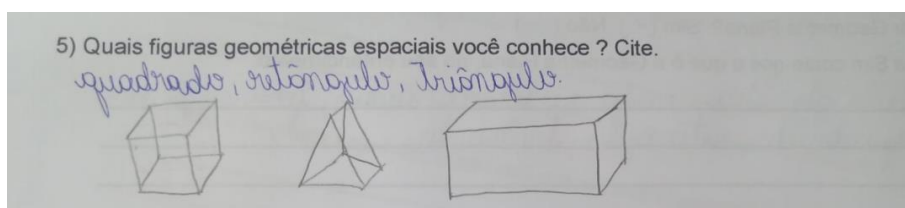 5) Quais figuras geométricas espaciais você conhece ? Cite.
quadrado, retângulo, triângulo.